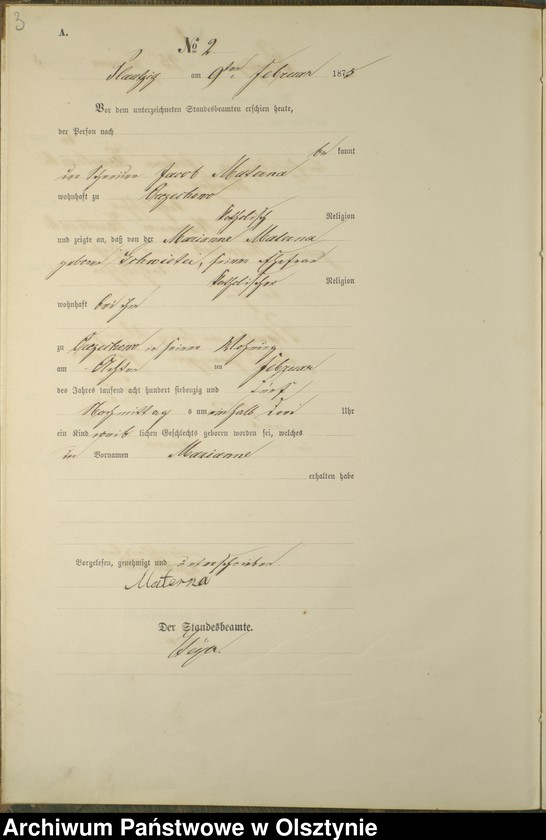 3
A.
No 2
Plautzig am 9ten Februar 1875
Vor dem unterzeichneten Standesbeamten erschien heute,
der Person nach
be kannt
Jacob Materna
wohnhaft zu
katholisch Religion
und zeigte an, daß von der Marianne Materna
geborne seiner Ehefrau
katholischer Religion
wohnhaft bei ihm
zu in seiner Wohnung
am Achten im Februar
des Jahres tausend acht hundert siebenzig und fünf
Nachmittag s um einhalb Uhr
ein Kind weib lichen Geschlechts geboren worden sei, welches
Vornamen Marianne
erhalten habe
Vorgelesen, genehmigt und unterschrieben
Materna
Der Standesbeamte.
Archiwum Państwowe w Olsztynie